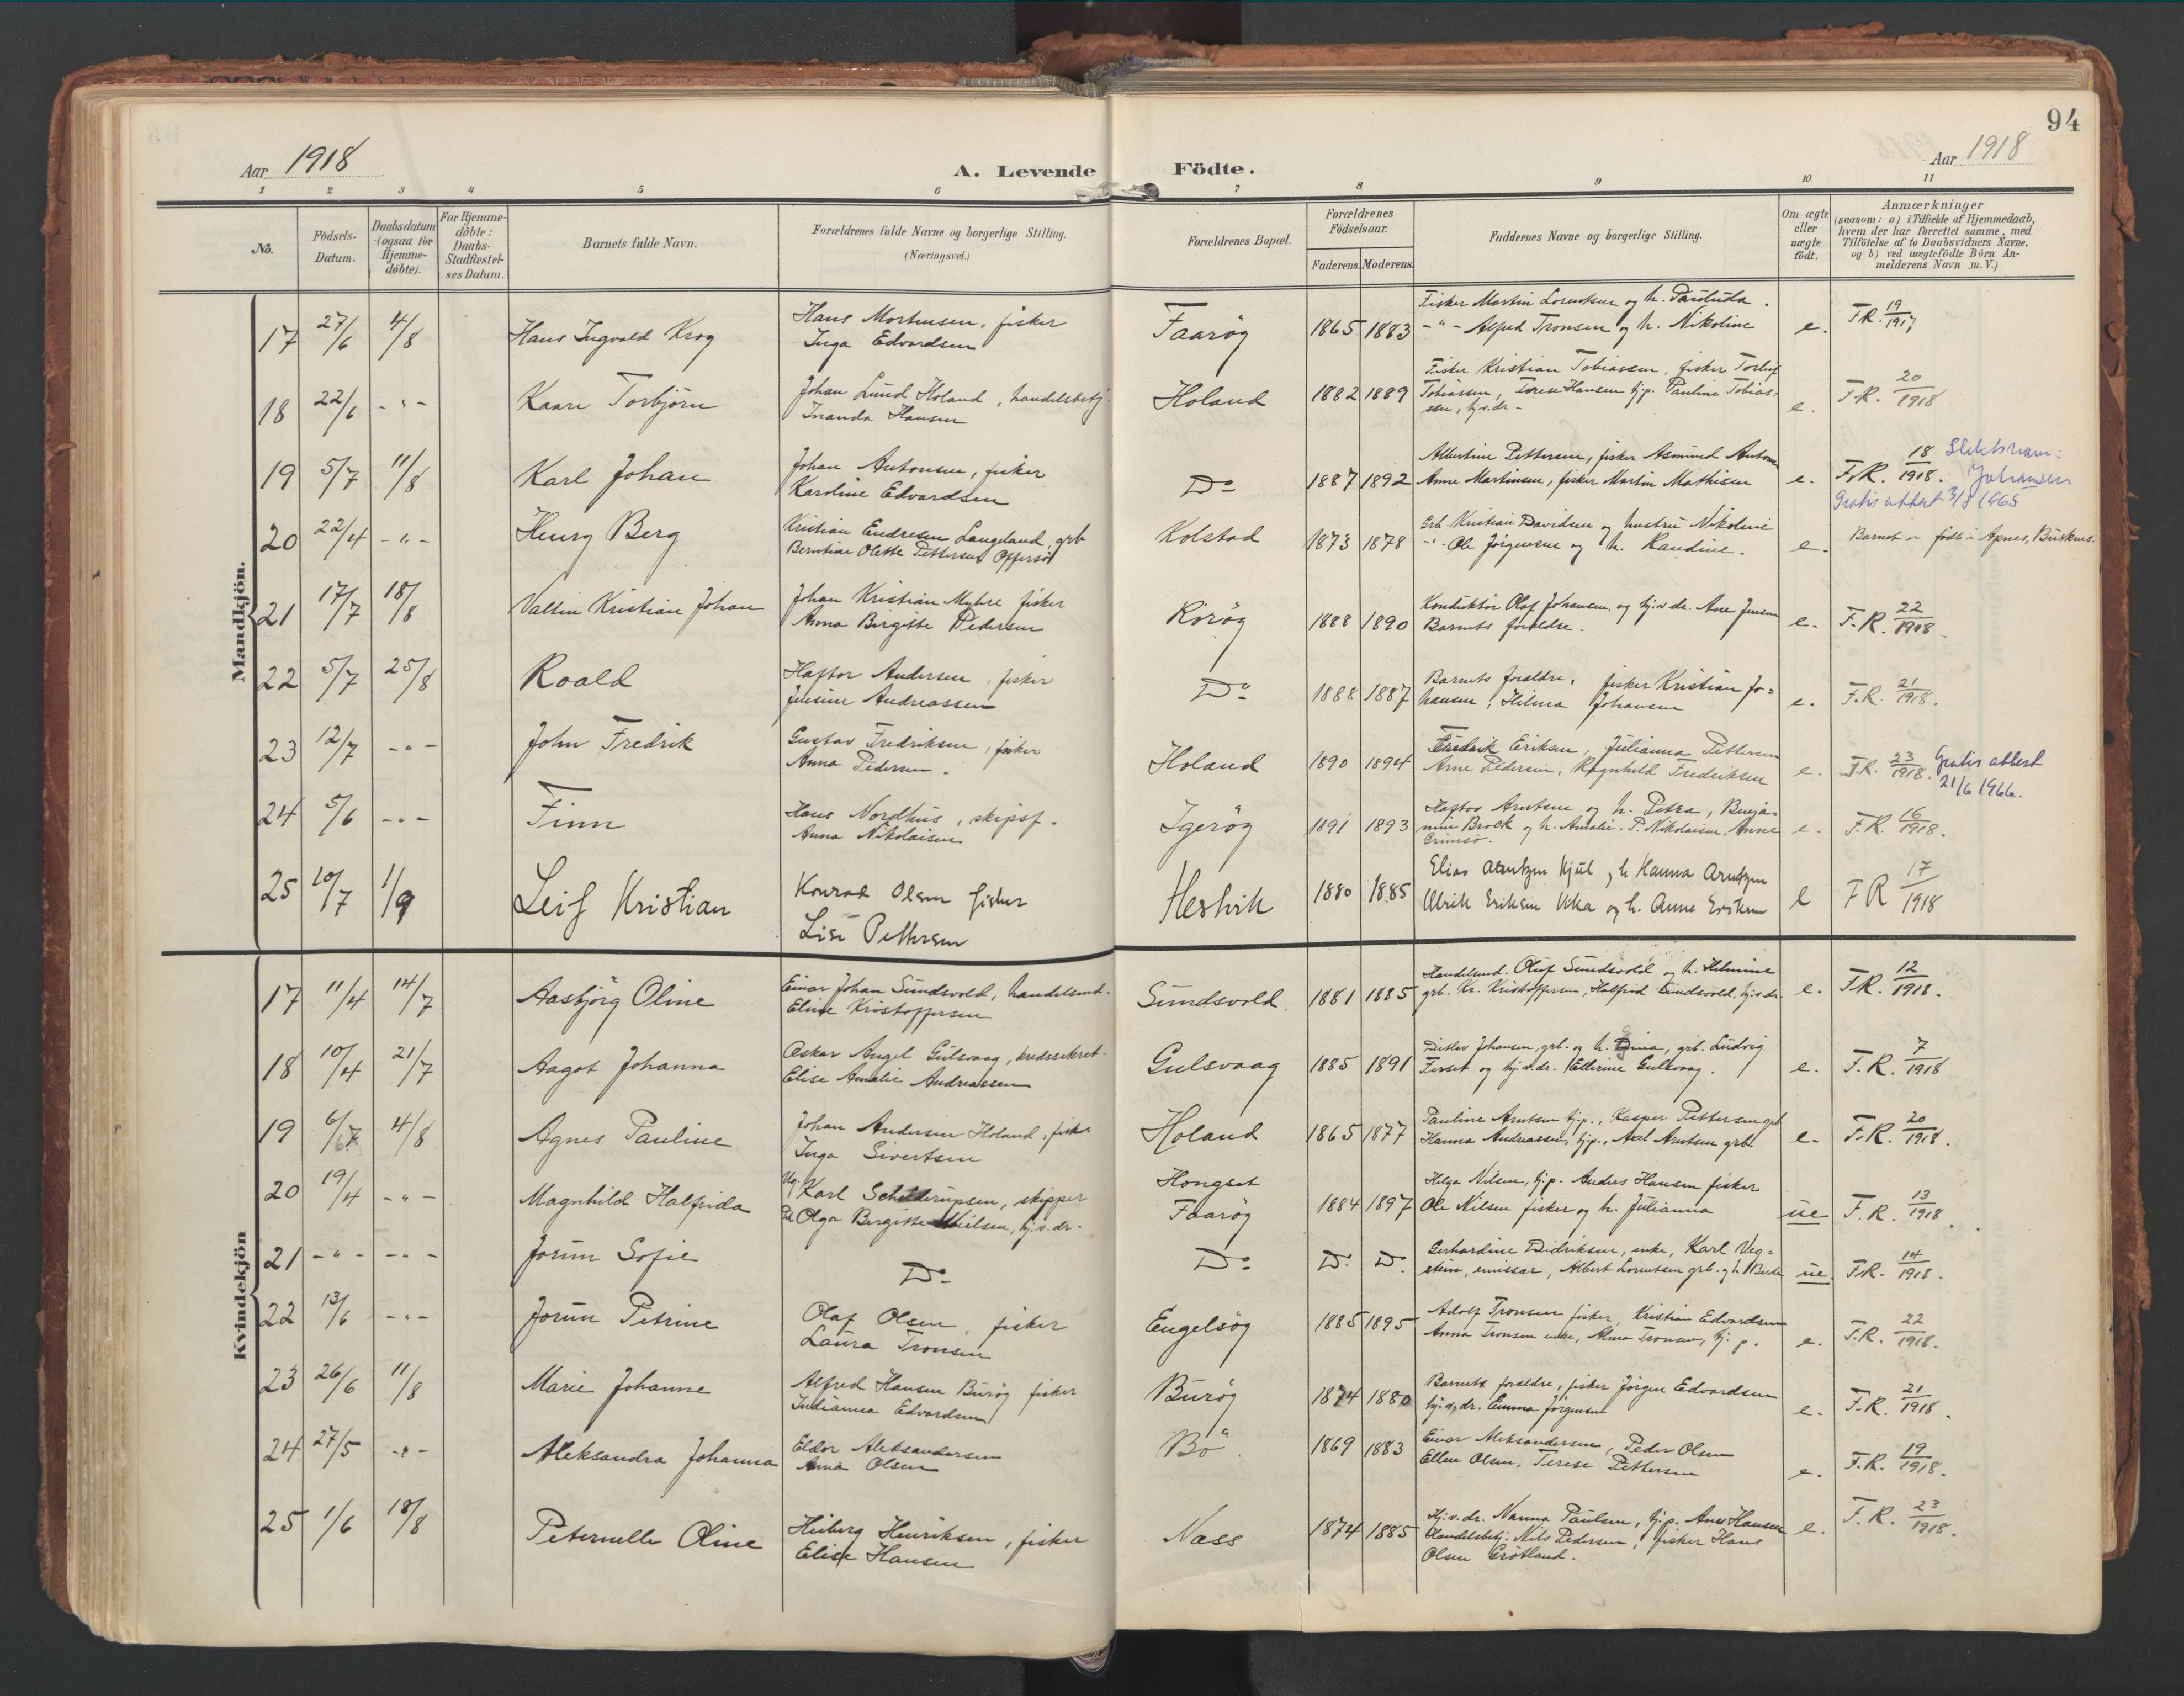 94
Aar 1918
A. Levende Födte.
Aar 1918
1 2 3 4 5 6 7 8 9 10 11
No.
Födsels-Datum.
Daabsdatum (ogsaa for Hjemme-döbte).
For Hjemme-döbte: Daabs-Stadfæstel-ses Datum.
Barnets fulde Navn.
Forældrenes fulde Navne og borgerlige Stilling.
(Næringsvei.)
Forældrenes Bopæl.
Forældrenes Födselsaar.
Faderens. Moderens.
Faddernes Navne og borgerlige Stilling.
Om ægte eller uægte födt.
Anmærkninger
(saasom: a) i Tilfælde af Hjemmedaab,
hvem der har forrettet samme, med
Tilföielse af to Daabsvidners Navne.
og b) ved uægtefödte Börn An-
melderens Navn m. V.)
Mandkjön.
17 27/6 4/8 Hans Ingvald Krog
Hans Mortensen, fisker
Inga Edvardsen
Faaröy 1865 1883
Fisker Martin Lorentsen og h.
-"- Alfred Tronsen og h. Nikoline
e. F.R. 19/1917
18 22/6 -"- Kaare Torbjörn
Johan Lund Holand, handelsbetj.
Inanda Hansen
Holand 1882 1889
Fisker Kristian Tobiassen, fisker Torleif
Tobiassen, Terese Hansen tj.p. Pauline Tobias-
sen, hj.v.dr.-
e. F.R. 20/1918
19 5/7 11/8 Karl Johan
Johan Antonsen, fisker
Karoline Edvardsen
Do 1887 1892
Albertine Pettersen, fisker Asmund Anton
Anne Martinsen, fisker Martin Mathisen
e. F.R. 18/1918. Slektsnavn: Johansen
Gratis attest 3/8 1965
20 22/4 -"- Henry Berg
Kristian Endresen Langeland, grb
Berntine Olette Pettersen Offersöi
Kolstad 1873 1878
Grb. Kristian Davidsen og hustru Nikoline
-"- Ole Jörgensen og h. Randine.
e. Barnet er födt i Apnes, Busknes.
21 17/7 18/8 Valtin Kristian Johan
Johan Kristian Myhre fisker
Anna Birgitte Pedersen
Koröy 1888 1890
Konduktör Olaf Johansen og hj.v.dr. Ane Jensen
Barnets forældre.
e. F.R. 22/1918.
22 5/7 25/8 Roald
Haftor Andersen, fisker
Jensine Andreassen
Do 1888 1887
Barnets forældre, fisker Kristian Jo=
hansen, Hilma Johansen
e. F.R. 21/1918.
23 12/7 -"- John Fredrik
Gustav Fredriksen, fisker
Anna Pedersen.
Holand 1890 1894
Fredrik Eriksen, Julianna Pettersen
Arne Pedersen, Ragnhild Fredriksen
e. F.R. 23/1918. Gratis attest
21/6 1966.
24 5/6 -"- Finn
Hans Nordhus, skipsf.
Anna Nikolaisen
Igeröy 1891 1893
Haftor Arntsen og h. Petra, Benja-
min Brock og h. Amalie. P. Nikolaisen, Anne
Grimsö.
e. F.R. 16/1918.
25 10/7 1/9 Leif Kristian
Konrad Olsen fisker
Lise Pettersen
Hestvik 1880 1885
Elias Arntzen Kjul og h Hanna Arntzen
Ulrik Eriksen Vika og h. Anne Eriksen
e F R 17/1918
Kvindekjön
17 11/4 14/7 Aasbjörg Oline
Einar Johan Sundsvold, handelsmd.
Eline Kristoffersen
Sundsvold 1881 1885
Handelsmd. Oluf Sundsvold og h. Helmine
grb. Kr. Kristoffersen, Halfrid Sundsvold, hj.v.dr.
e. F.R. 12/1918.
18 10/4 21/7 Aagot Johanna
Oskar Angel Gulsvaag, kredssekret.
Elise Amalie Andreassen
Gulsvaag 1885 1891
Ditlev Johansen, grb. og h. Gina, grb. Ludvig
Forset og hj.v.dr. Ellerine Gulsvaag.
e. F.R. 7/1918
19 6/7 4/8 Agnes Pauline
Johan Andersen Holand, fisker
Inga Sivertsen
Holand 1865 1877
Pauline Arntsen tj.p., Kasper Pettersen grb
Hanna Andreassen, tj.p., Axel Arntsen grb.
e. F.R. 20/1918.
20 19/4 -"- Magnhild Halfrida
Ug. Karl Schilderupsen, skipper
Pi. Olga Birgitte Nielsen, hj.v.dr.
Hongset
Faaröy 1884 1897
Helga Nilsen, tj.p. Anders Hansen fisker
Ole Nilsen fisker og h. Julianna
ue F.R. 13/1918.
21 -"- -"- Jorun Sofie
Do Do D. D.
Gerhardine Didriksen, enke, Karl Veg=
stein, emissær, Albert Lorentsen grb. og h Berta
ue. F.R. 14/1918.
22 13/6 -"- Jorun Petrine
Olaf Olsen, fisker
Laura Tronsen
Engelsöy 1885 1895
Adolf Tronsen fisker, Kristian Edvardsen
Anna Tronsen enke, Alma Tronsen, tj.p.
e. F.R. 22/1918.
23 26/6 11/8 Marie Johanne
Alfred Hansen Buröy fisker
Indianna Edvardsen
Buröy 1874 1880
Barnets forældre, fisker Jörgen Edvardsen
hj.v.dr. Emma Jörgensen
e. F.R. 21/1918.
24 27/5 -"- Aleksandra Johanna
Eldor Aleksandersen
Anna Olsen
Bö 1869 1883
Einar Aleksandersen, Peder Olsen
Ellen Olsen, Terese Pettersen
e. F.R. 19/1918.
25 1/6 18/8 Peternelle Oline
Heiberg Henriksen, fisker
Elise Hansen
Næss 1874 1885
Hj.v.dr. Nanna Paulsen, tj.p. Anes Hansen
Handelsbetj. Nils Pedersen, fisker Hans
Olsen Grötland.
e. F.R. 23/1918.